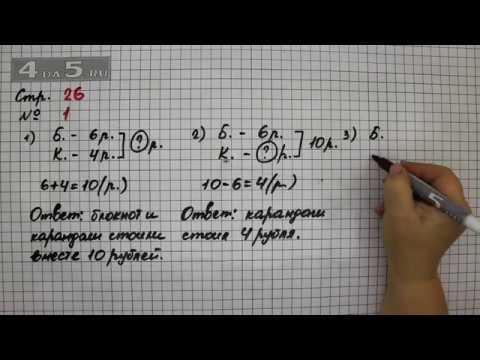 4 DA 5.RU
Стр. 26
№ 1
1) Б. - 6р.
К. - 4р. ] ? р.
6+4=10(р.)
Ответ: блокнот и
карандаш стоили
вместе 10 рублей.
2) Б. - 6р.
К. - ? р. ] 10р.
10-6=4(р.)
Ответ: карандаш
стоил 4 рубля.
3) Б.